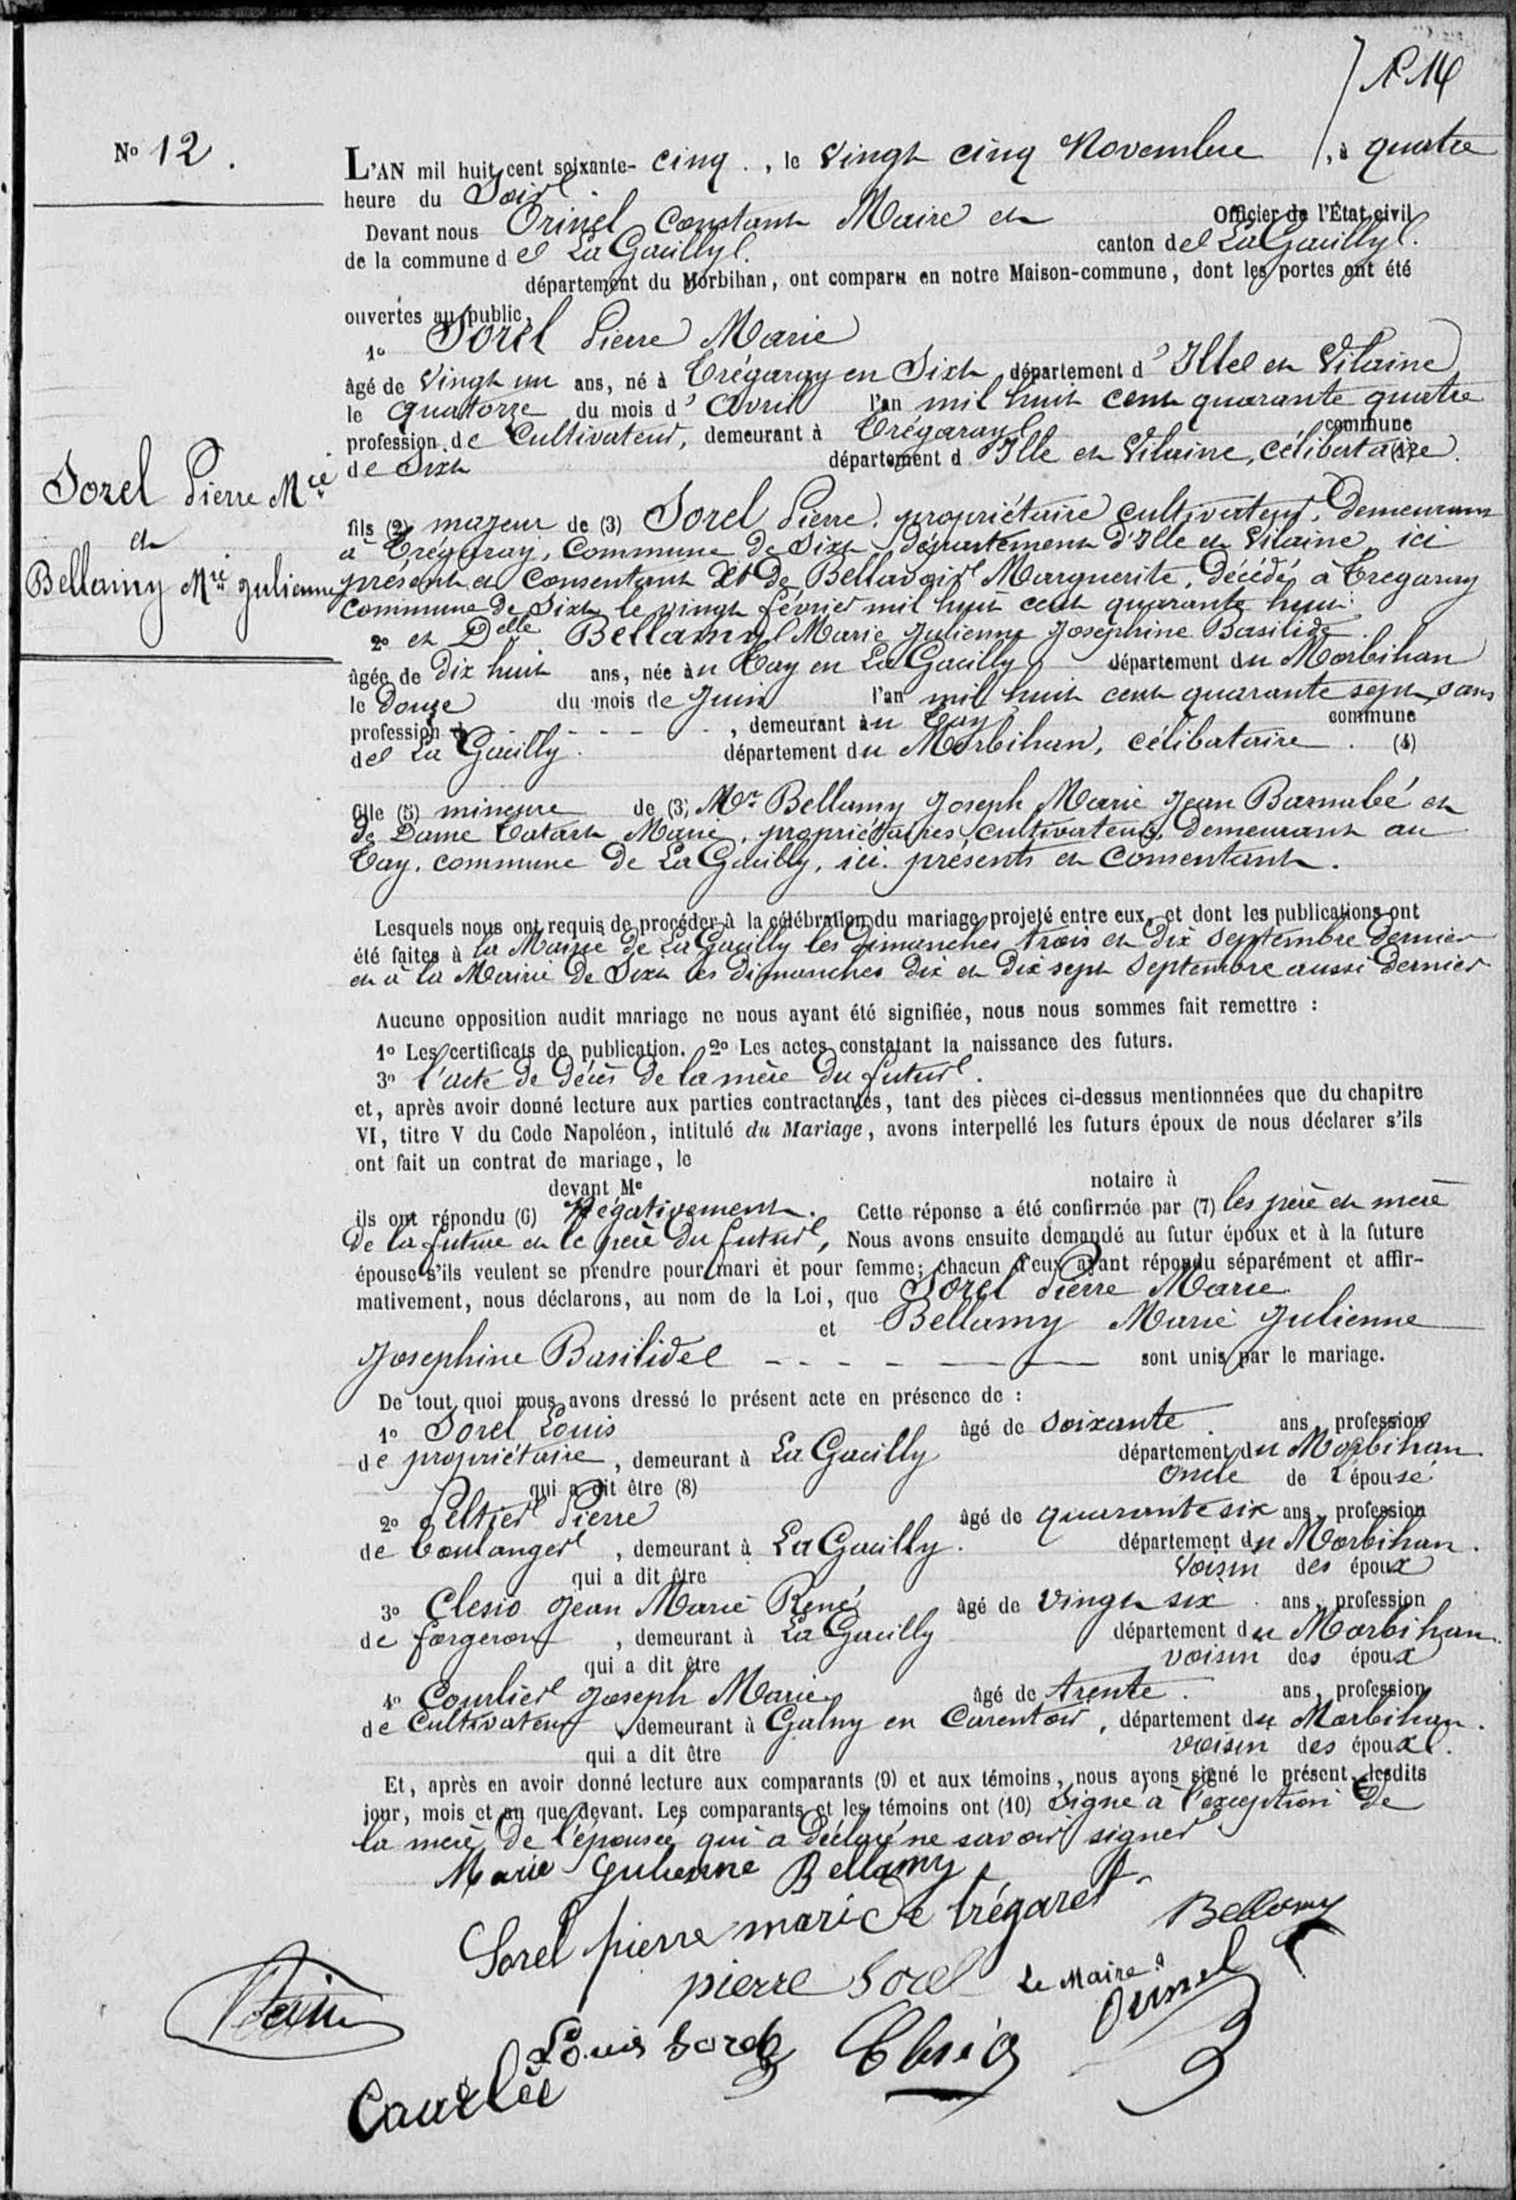 No 12.
L'AN mil huit cent soixante- cinq., le vingt cinq Novembre, à quatre
heure du Soir
Devant nous Orinel Constant Maire et Officier de l'État civil
de la commune de La Gacilly. canton de La Gacilly.
département du Morbihan, ont comparu en notre Maison-commune, dont les portes ont été
ouvertes au public,
1o Sorel Pierre Marie
âgé de vingt un ans, né à Trégaray en Sixt département d'Ille et Vilaine
le quatorze du mois d'avril l'an mil huit cent quarante quatre
profession de Cultivateur, demeurant à Trégaray commune
de Sixt département d Ille et Vilaine, célibataire. (1)
Sorel Pierre Mie
et
Bellamy Mie Julienne
fils (2) majeur de (3) Sorel Pierre. propriétaire cultivateur, Demeurant
à Trégaray, Commune de Sixt département d'Ille et Vilaine, ici
présent et consentant et de Bellavoir Marguerite, décédé à Tregaray
commune de Sixt le vingt février mil huit cent quarante huit.
2o et Delle Bellamy Marie Julienne Josephine Basilide.
âgée de dix huit ans, née au Tay en La Gacilly département du Morbihan
le Douze du mois de Juin l'an mil huit cent quarante sept, sans
profession d - - - - - , demeurant au Tay commune
de La Gacilly. département du Morbihan, célibataire. (4)
fille (5) mineure de (3) Mr Bellamy Joseph Marie Jean Barnabé et
de Dame Tatart Marie, propriétaires cultivateurs, demeurant au
Tay, commune de La Gacilly, ici présents et consentant.
Lesquels nous ont requis de procéder à la célébration du mariage projeté entre eux, et dont les publications ont
été faites à la Mairie de La Gacilly les dimanches trois et dix Septembre dernier
et à la Mairie de Sixt les dimanches dix et dix sept Septembre aussi dernier
Aucune opposition audit mariage ne nous ayant été signifiée, nous nous sommes fait remettre :
1o Les certificats de publication. 2o Les actes constatant la naissance des futurs.
3o l'acte de décès de la mère du futur.
et, après avoir donné lecture aux parties contractantes, tant des pièces ci-dessus mentionnées que du chapitre
VI, titre V du Code Napoléon, intitulé du Mariage, avons interpellé les futurs époux de nous déclarer s'ils
ont fait un contrat de mariage, le
devant Me notaire à
ils ont répondu (6) Négativement. Cette réponse a été confirmée par (7) les père et mère
de la future et le père du futur, Nous avons ensuite demandé au futur époux et à la future
épouse s'ils veulent se prendre pour mari et pour femme; chacun d'eux ayant répondu séparément et affir-
mativement, nous déclarons, au nom de la Loi, que Sorel Pierre Marie
et Bellamy Marie Julienne
Josephine Basilide - - - - - sont unis par le mariage.
De tout quoi nous avons dressé le présent acte en présence de :
1o Sorel Louis âgé de soixante. ans, profession
de propriétaire, demeurant à La Gacilly département du Morbihan.
qui a dit être (8) oncle de l'épousé
2o Peltier Pierre âgé de quarante six ans, profession
de boulanger, demeurant à La Gacilly. département du Morbihan.
qui a dit être voisin des époux
3o Clesio Jean Marie René âgé de vingt six. ans, profession
de forgeron, demeurant à La Gacilly département du Morbihan.
qui a dit être voisin des époux
4o Courlier Joseph Marie âgé de trente. ans, profession
de Cultivateur, demeurant à Galny en Carentoir, département du Morbihan.
qui a dit être voisin des époux.
Et, après en avoir donné lecture aux comparants (9) et aux témoins, nous ayons signé le présent lesdits
jour, mois et an que devant. Les comparants et les témoins ont (10) signé à l'exception de
la mère de l'épousée qui a déclaré ne savoir signer
Marie Julienne Bellamy
Sorel pierre marie de trégaret Bellamy
pierre Sorel Le Maire
Orinel
Louis Sorel Clesio